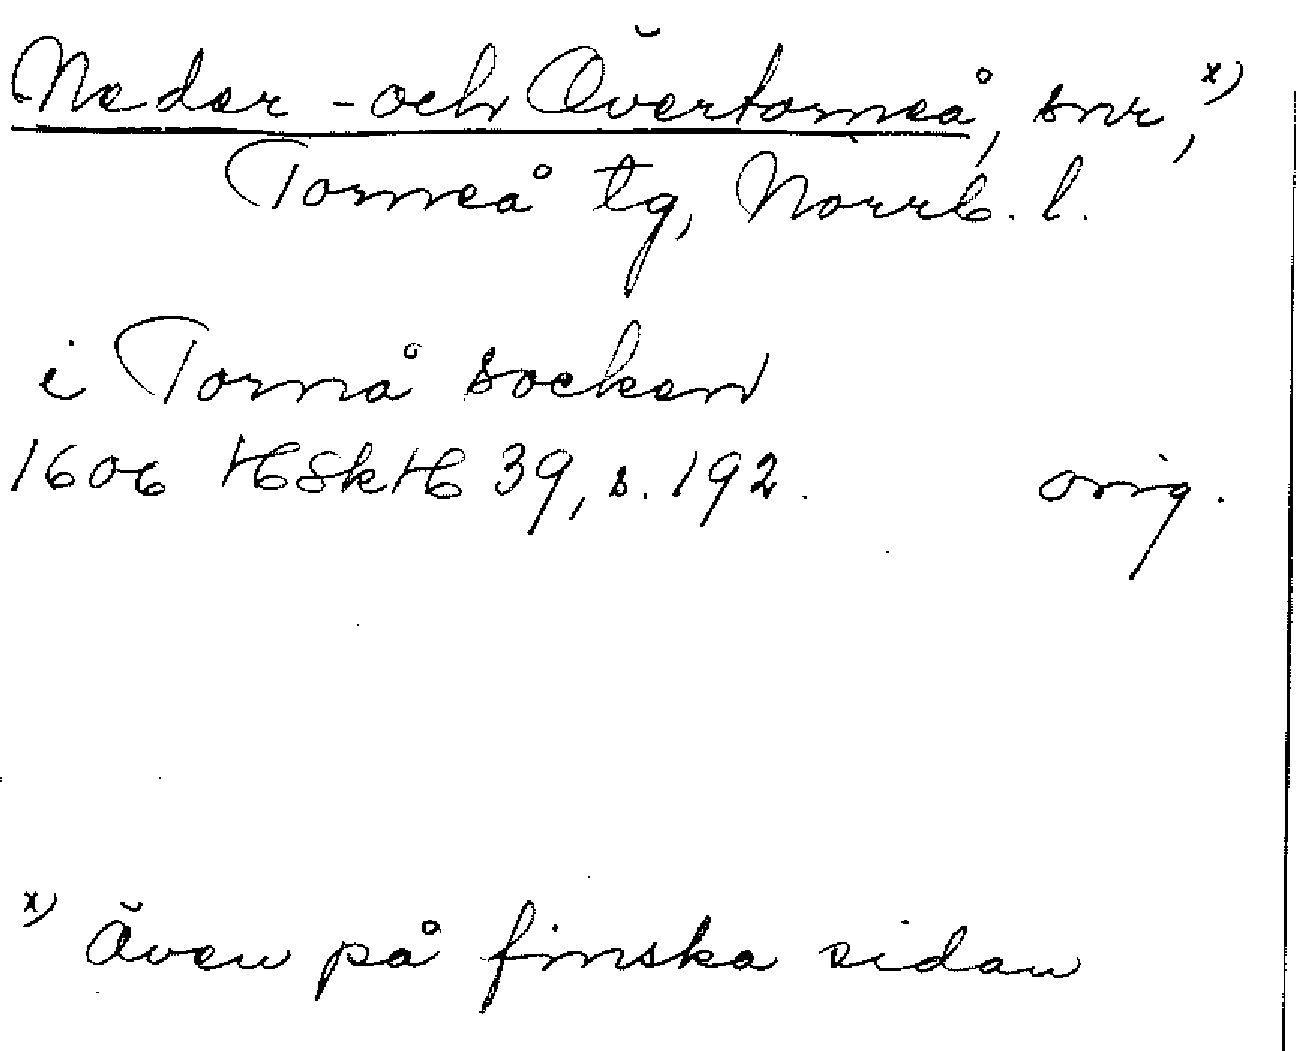 Neder- och Övertorneå, snr, x)
Torneå tg, Norrb. l.
i Tornå socken
1606 HSkH 39, s. 192. orig.
x) Även på finska sidan